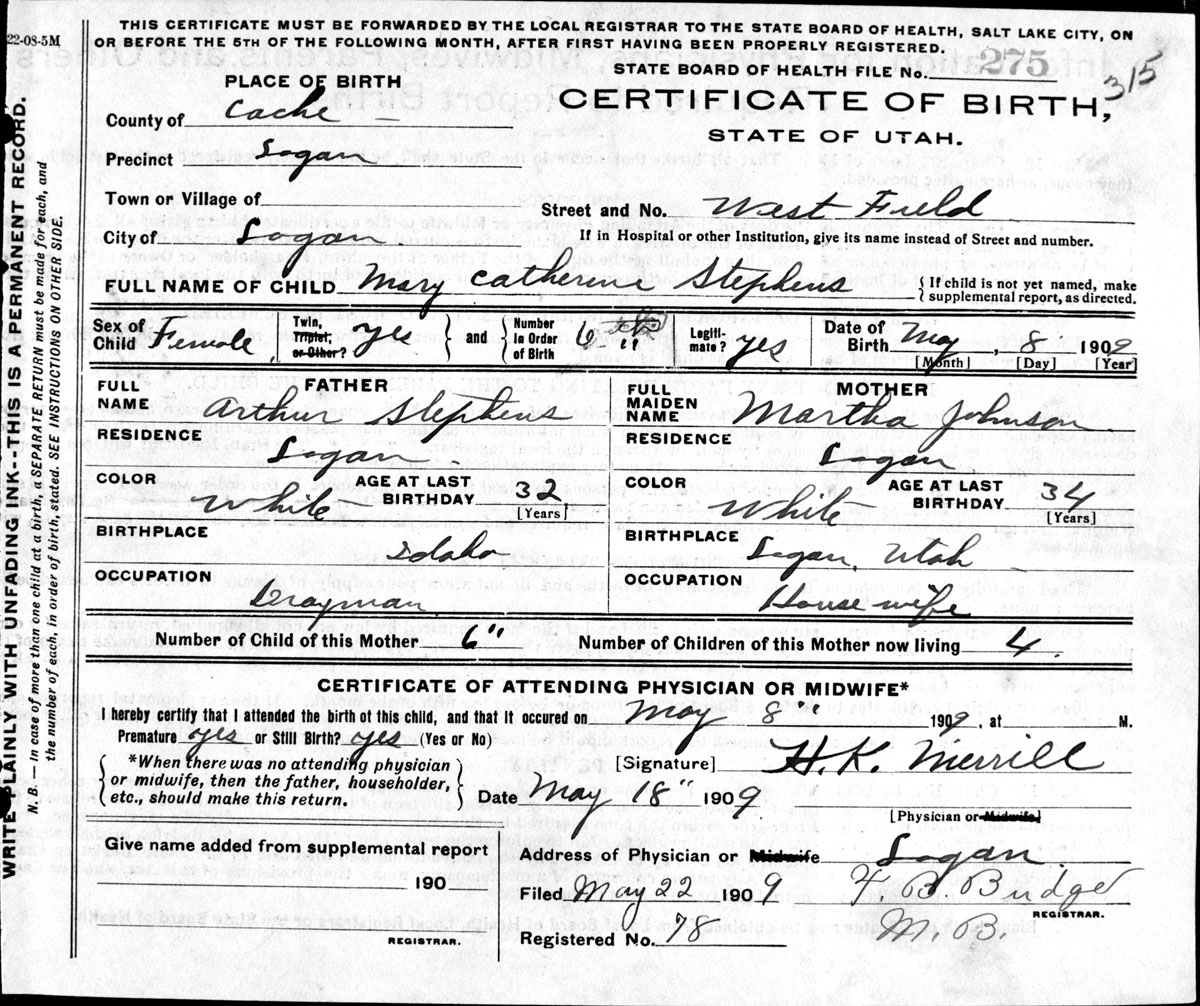 THIS CERTIFICATE MUST BE FORWARDED BY THE LOCAL REGISTRAR TO THE STATE BOARD OF HEALTH, SALT LAKE CITY, ON
OR BEFORE THE 5TH OF THE FOLLOWING MONTH, AFTER FIRST HAVING BEEN PROPERLY REGISTERED.
22-08-5M
WRITE PLAINLY WITH UNFADING INK--THIS IS A PERMANENT RECORD.
N. B.—In case of more than one child at a birth, a SEPARATE RETURN must be made for each, and
the number of each, in order of birth, stated. SEE INSTRUCTIONS ON OTHER SIDE.
STATE BOARD OF HEALTH FILE No. 275 315
PLACE OF BIRTH
CERTIFICATE OF BIRTH,
STATE OF UTAH.
County of Cache
Precinct Logan
Town or Village of
Street and No. West Field
City of Logan
If in Hospital or other Institution, give its name instead of Street and number.
FULL NAME OF CHILD Mary Catherine Stephens { If child is not yet named, make
supplemental report, as directed.
Sex of Child Female Twin, Triplet, or Other? yes } and { Number in Order of Birth 6 " Legiti- mate? yes Date of Birth May, 8 1909
[Month] [Day] [Year]
FATHER
FULL NAME Arthur Stephens
RESIDENCE Logan
COLOR White AGE AT LAST BIRTHDAY 32 [Years]
BIRTHPLACE Idaho
OCCUPATION Drayman
MOTHER
FULL MAIDEN NAME Martha Johnson
RESIDENCE Logan
COLOR White AGE AT LAST BIRTHDAY 34 [Years]
BIRTHPLACE Logan, Utah
OCCUPATION House wife
Number of Child of this Mother 6" Number of Children of this Mother now living 4.
CERTIFICATE OF ATTENDING PHYSICIAN OR MIDWIFE*
I hereby certify that I attended the birth of this child, and that it occured on May 8" 1909, at M.
Premature yes or Still Birth? yes (Yes or No)
{ *When there was no attending physician
or midwife, then the father, householder,
etc., should make this return. }
[Signature] H.K. Merrill
Date May 18" 1909
[Physician or Midwife]
Give name added from supplemental report
190
REGISTRAR.
Address of Physician or Midwife Logan.
Filed May 22 1909 F. B. Budge
REGISTRAR.
Registered No. 78 M. B.